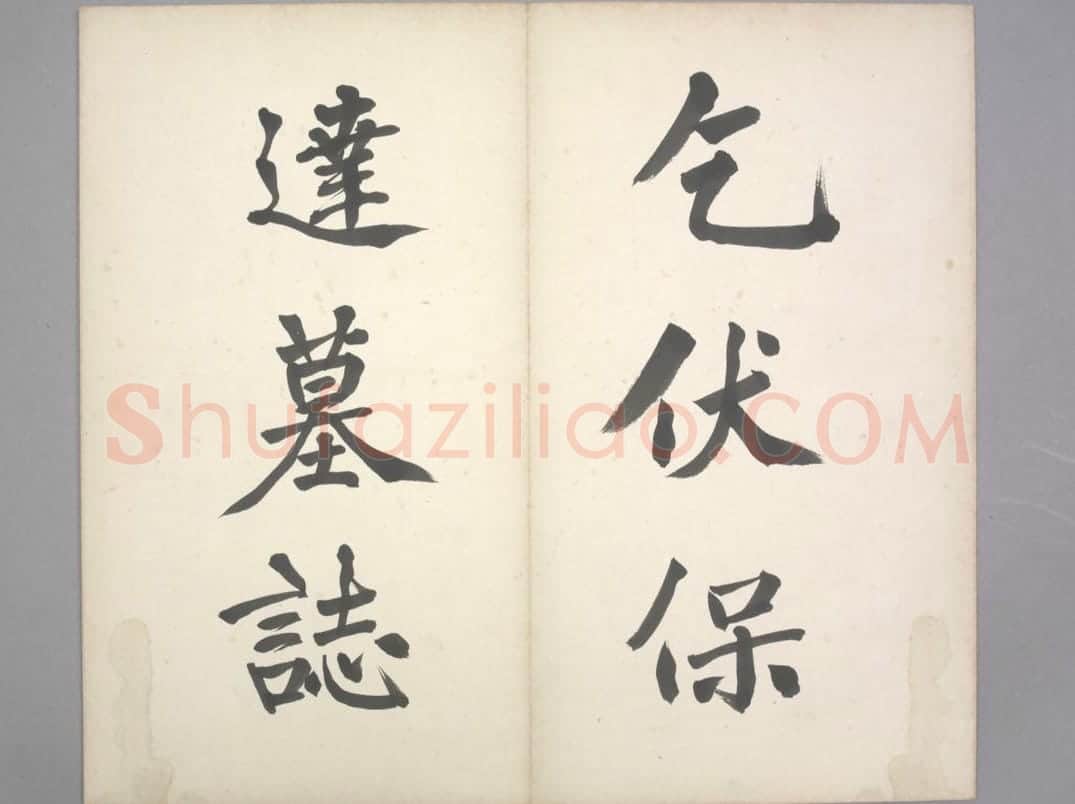 乞伏保
達墓誌
Shufaziliao.COM